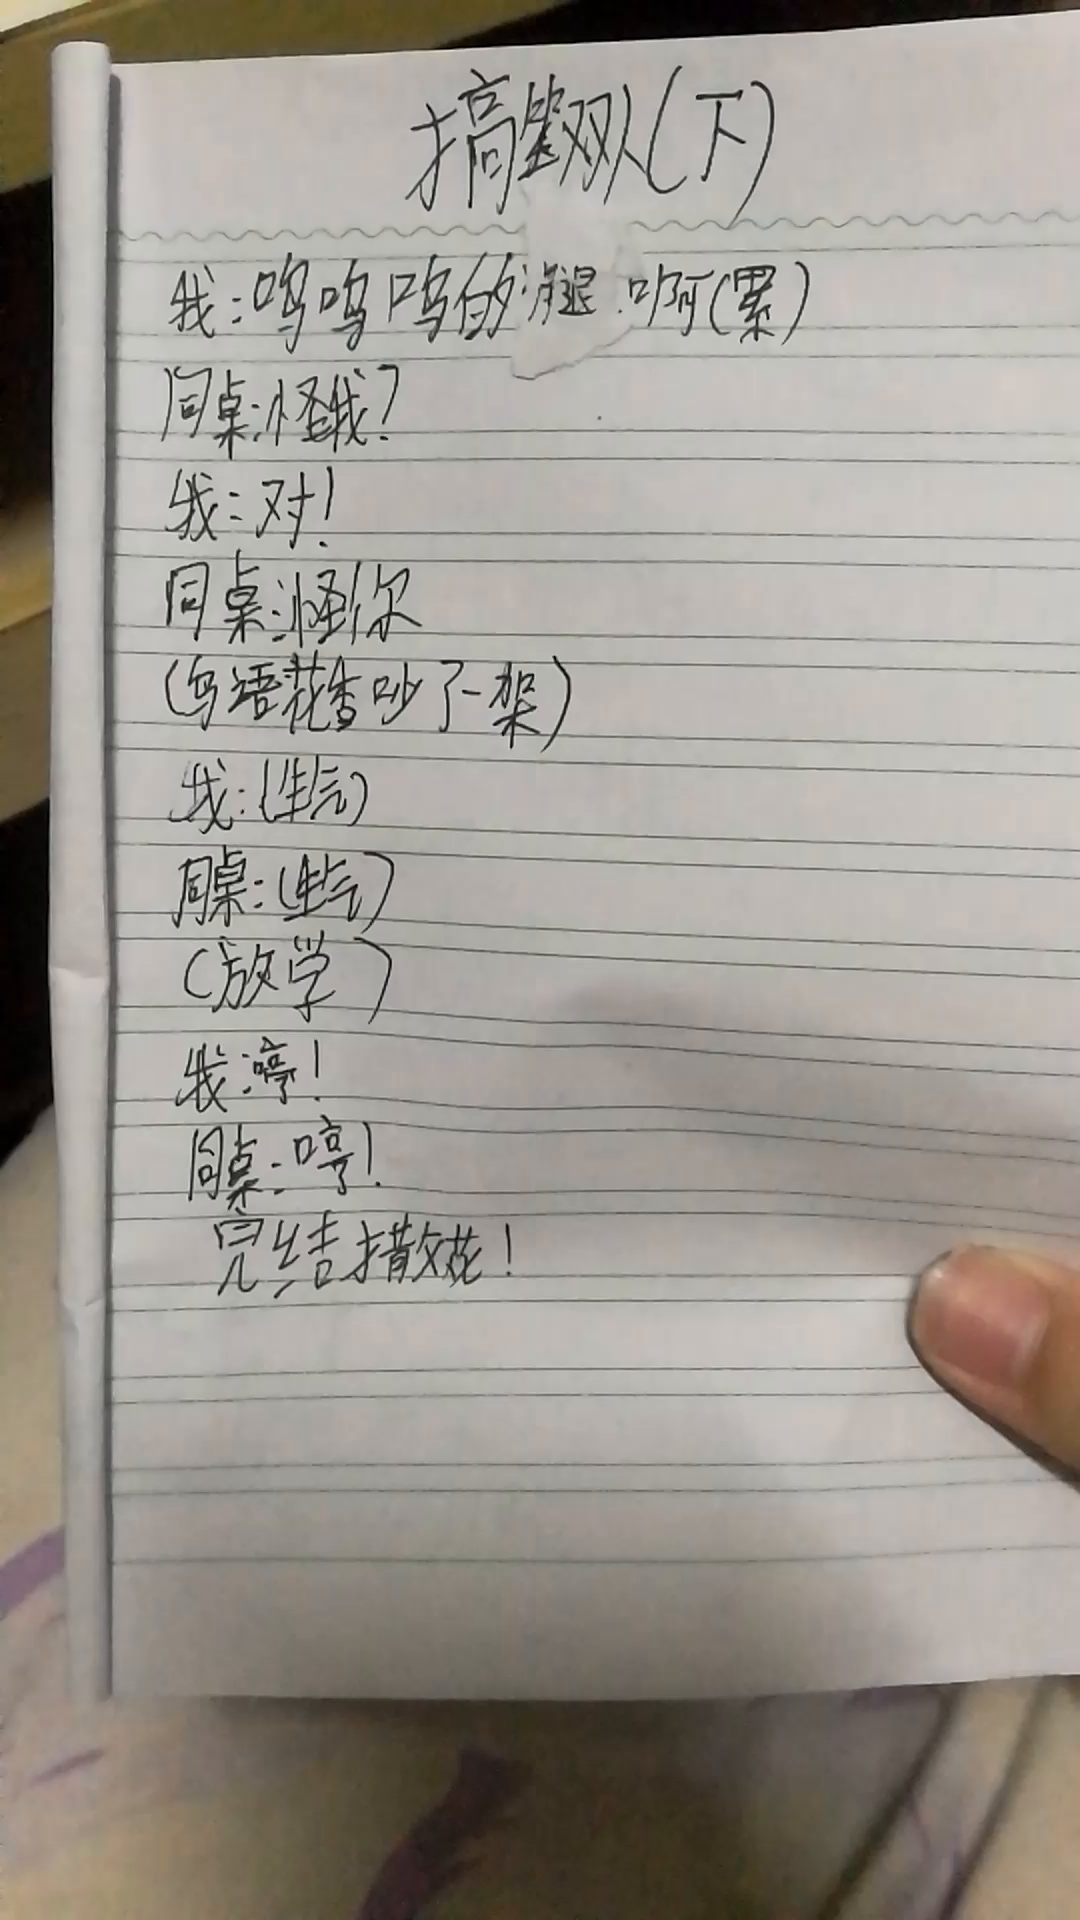 搞笑双人(下)
我:呜呜呜的腿啊(累)
同桌:怪我?
我:对!
同桌:怪你
(鸟语花香吵了一架)
我:(生气)
同桌:(生气)
(放学)
我:哼!
同桌:哼!
完结撒花!